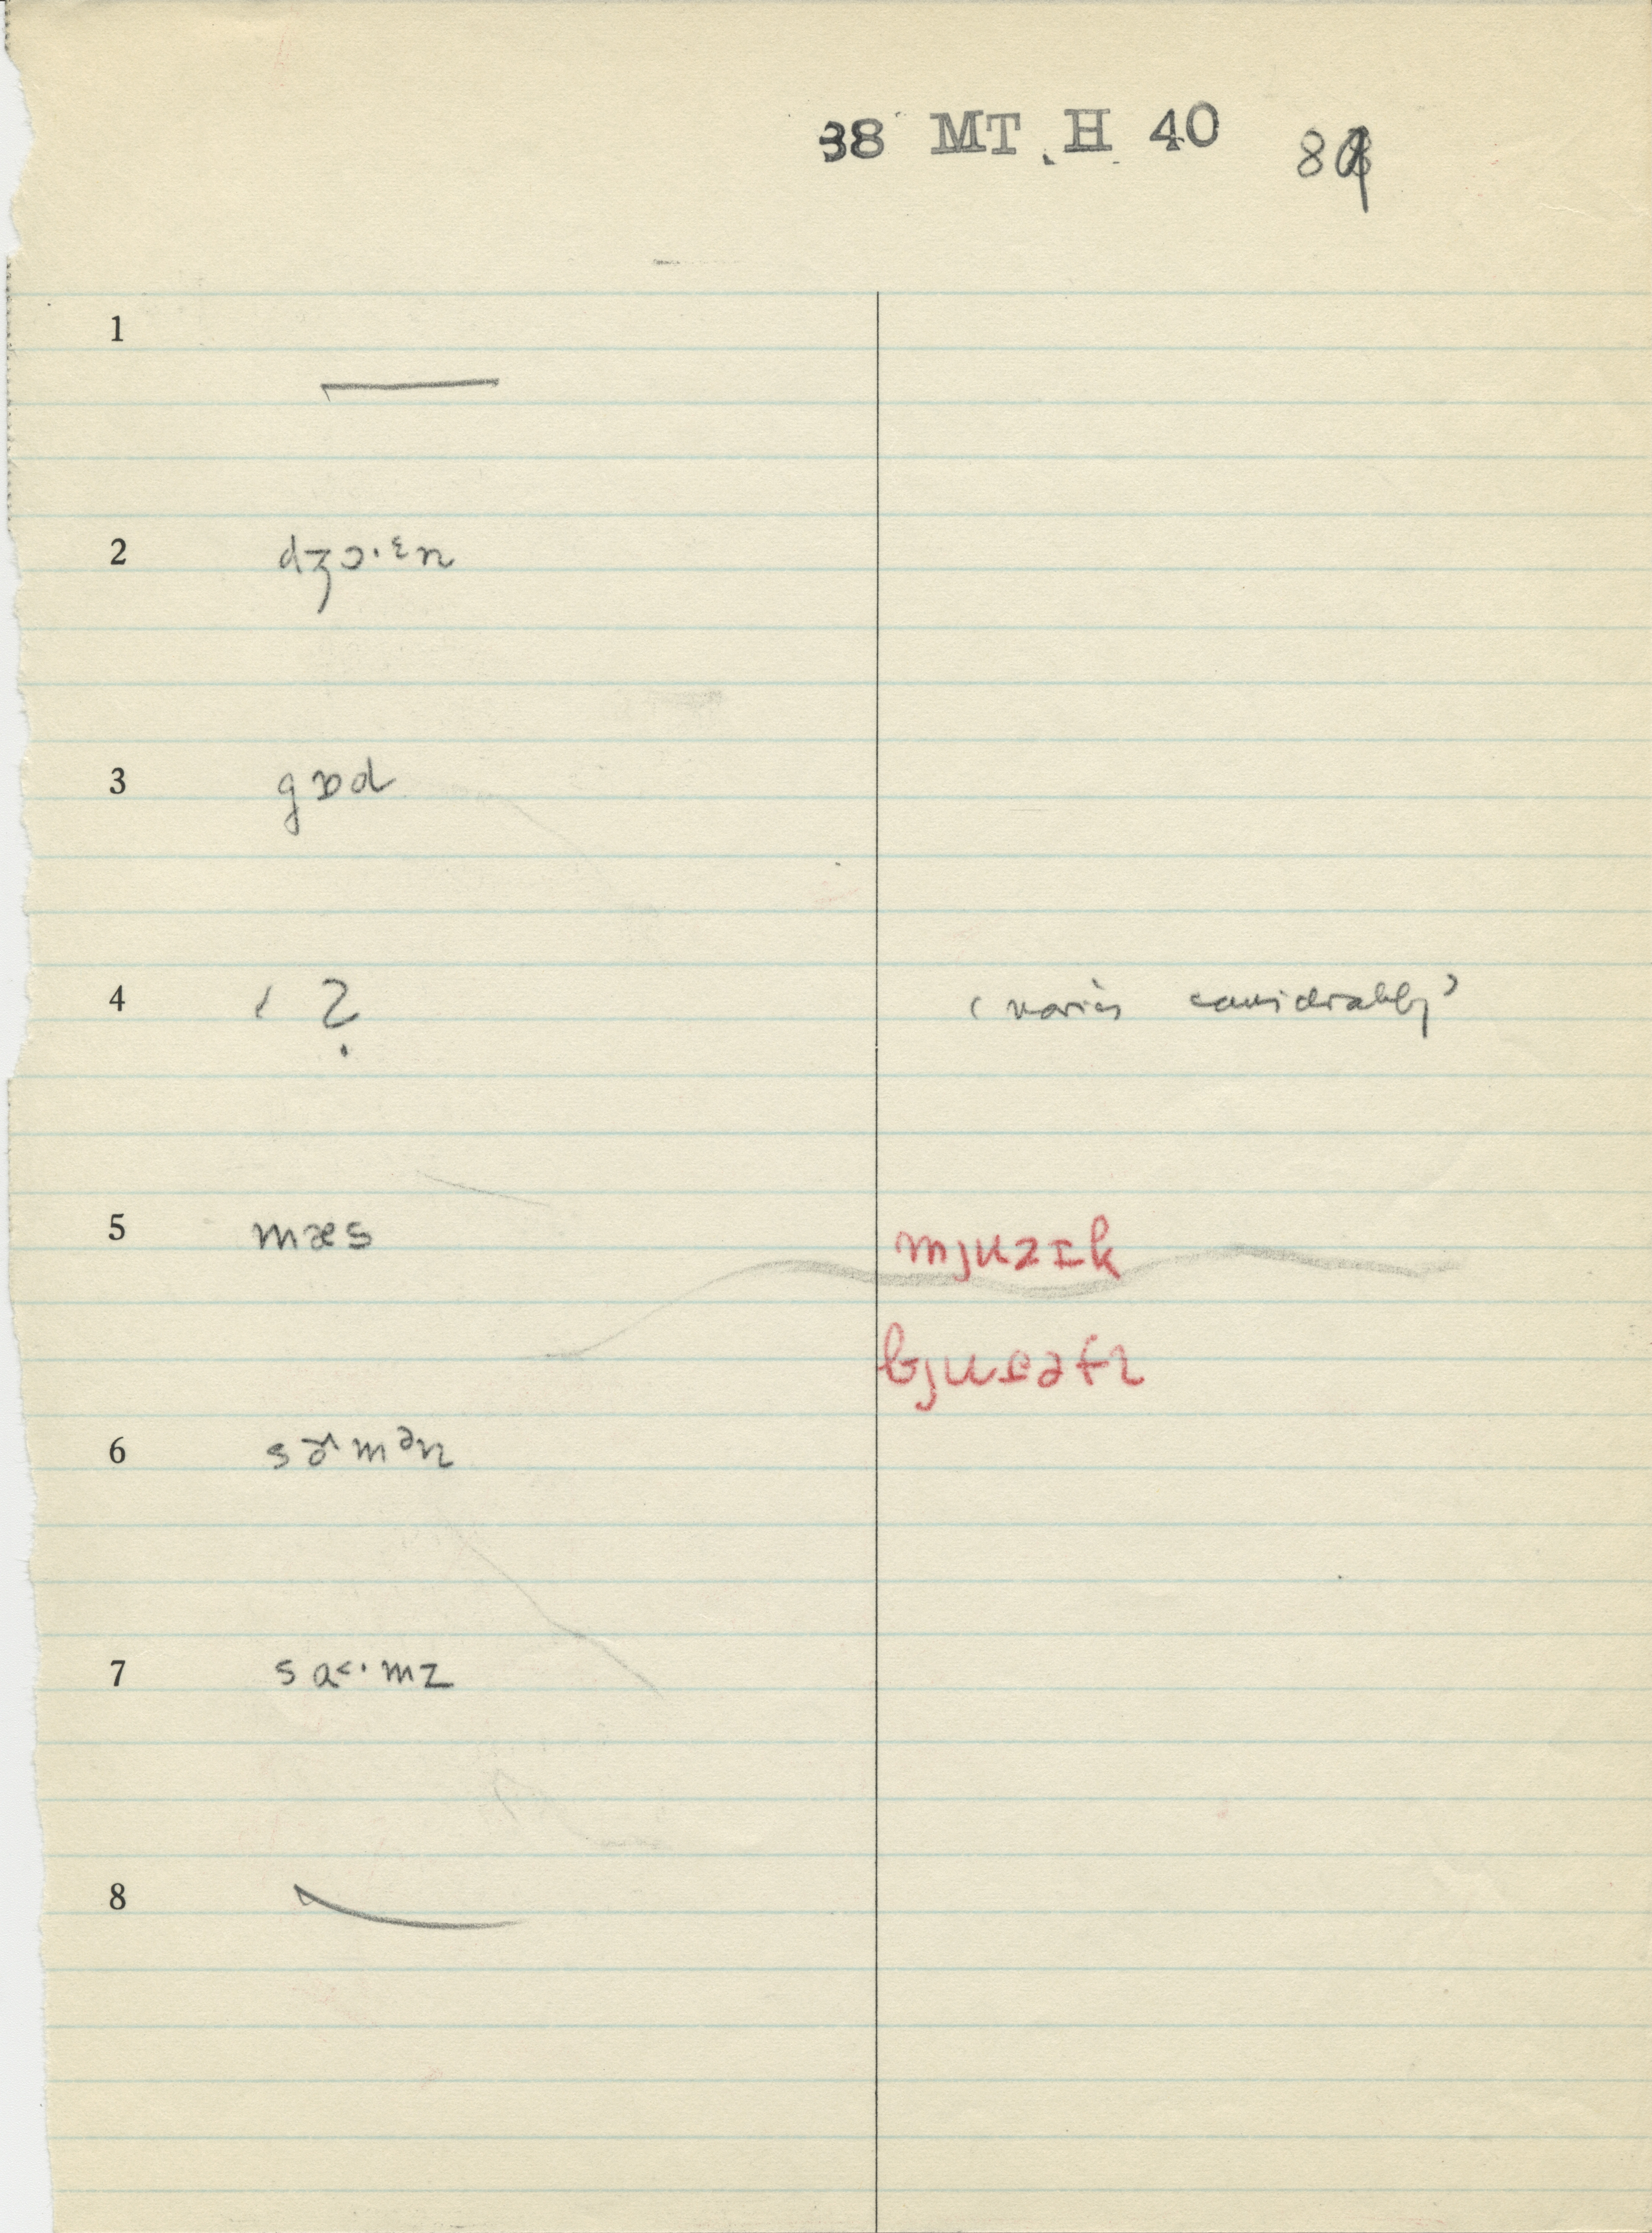 38 MT. H 40
1 —
2 dʒɔ·ᵋn
3 gɒd
4 ✓ ?
(varies considerably)
5 mæs mjuzɪk
6 sɚmᵊn
7 sɑ<·mz
8 —